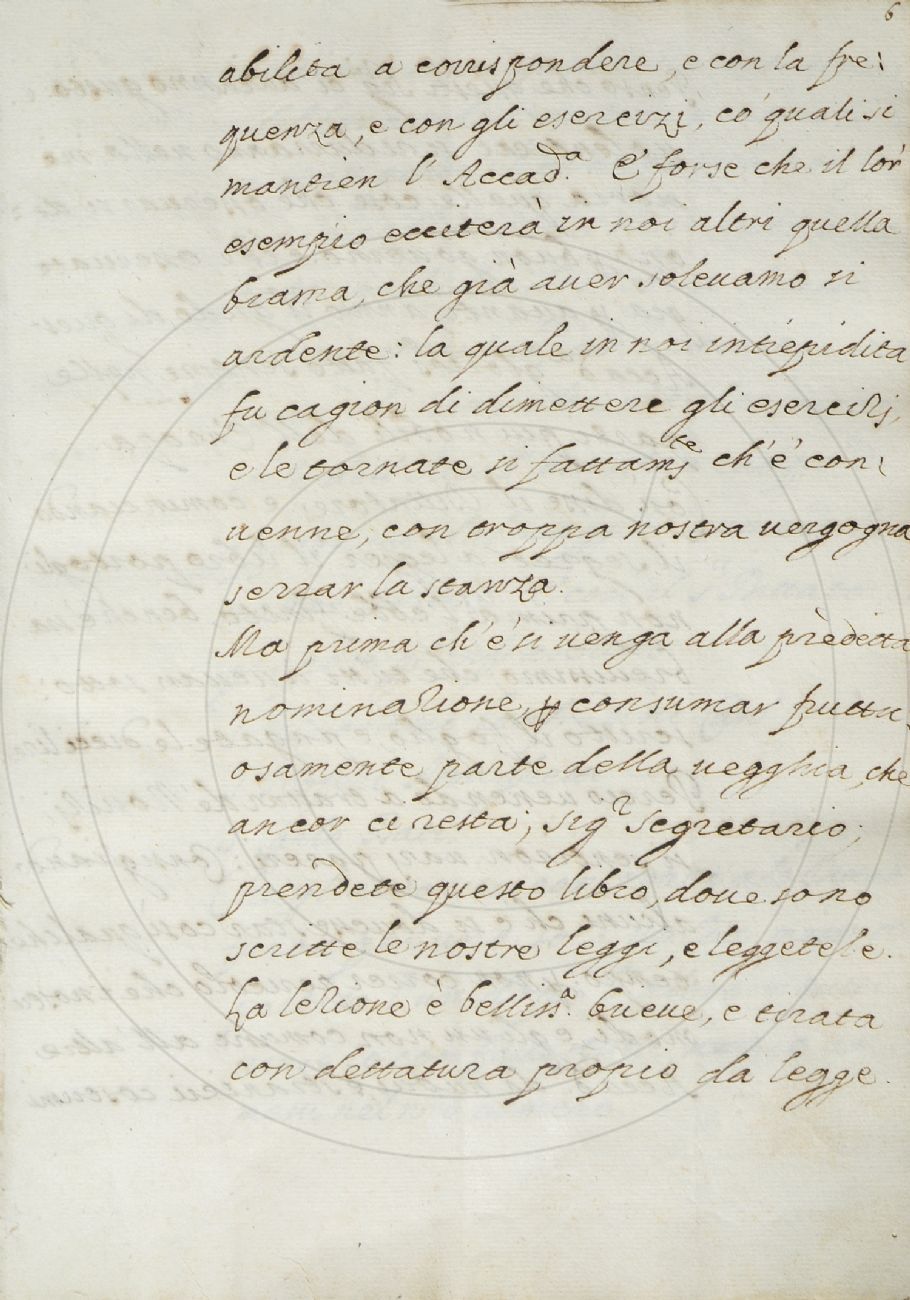 6
abilita a corrispondere, e con la fre:
quenza, e con gli esercizi, co' quali si
mantien l'Accad.ª E' forse che il lor
esempio ecciterà in noi altri quella
brama, che già aver solevamo si
ardente: la quale in noi intiepidita
fu cagion di dimettere gli esercizj,
e le tornate si fattam.te ch'e' con:
venne, con troppa nostra vergogna
serrar la stanza.
Ma prima ch'e' si venga alla predetta
nominazione, ꝑ consumar fruttu
osamente parte della vegghia, che
ancor ci resta; sig.r segretario,
prendete questo libro, dove sono
scritte le nostre leggi, e leggetele.
La lezione è belliss.ª breve, e tirata
con dettatura propio da legge.